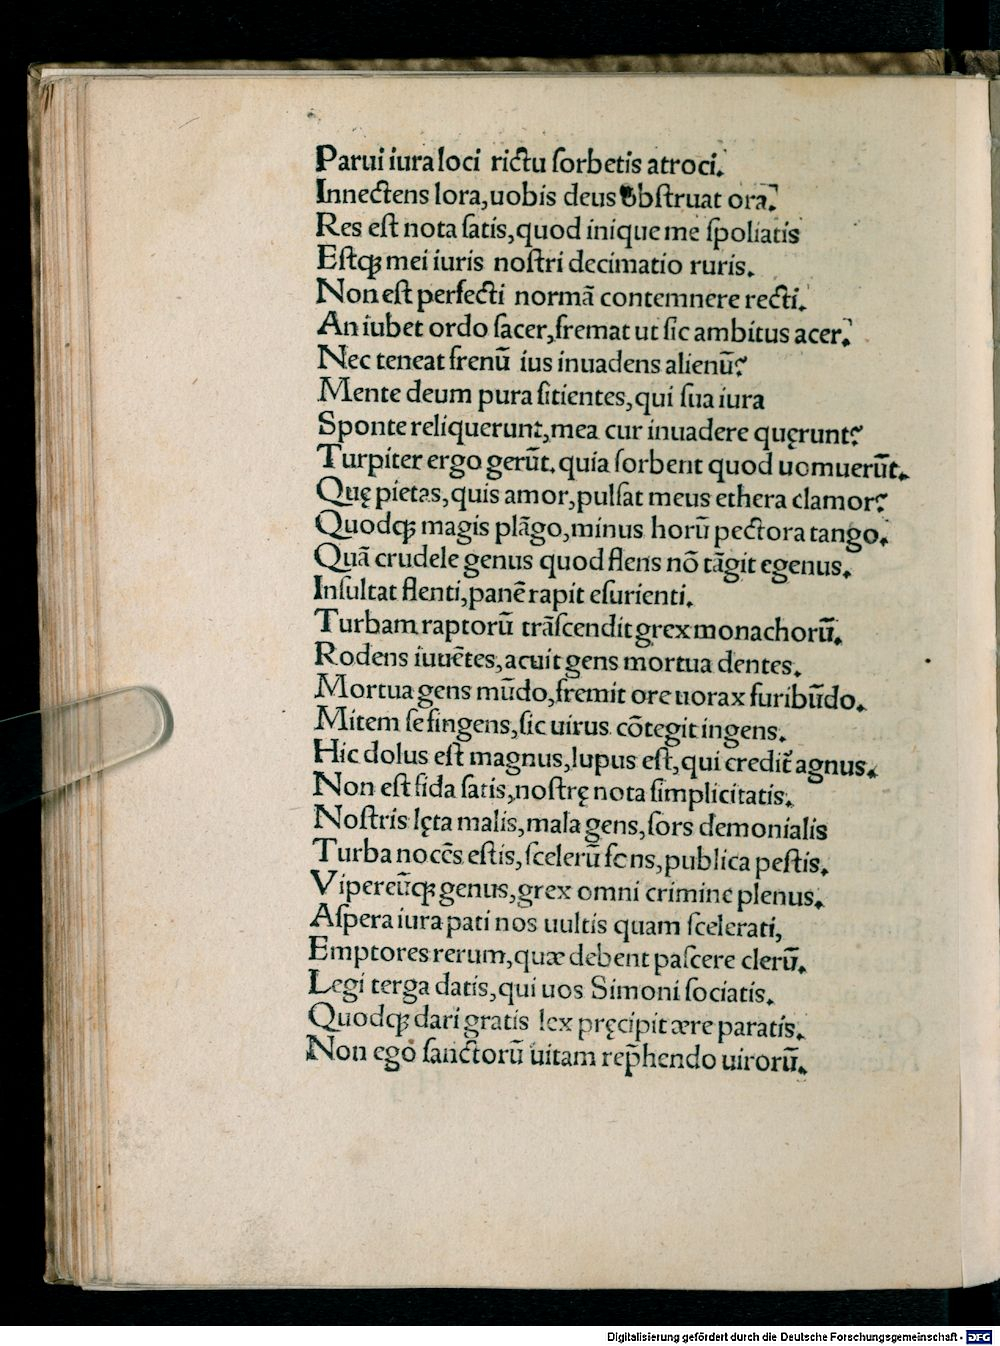 Parui iura loci rictu ſorbetis atroci.
Innectens lora,uobis deus obſtruat ora.
Res eſt nota ſatis,quod inique me ſpoliatis
Eſtqꝫ mei iuris noſtri decimatio ruris.
Non eſt perfecti normā contemnere recti.
An iubet ordo ſacer,fremat ut ſic ambitus acer.
Nec teneat frenū ius inuadens alienū?
Mente deum pura ſitientes,qui ſua iura
Sponte reliquerunt,mea cur inuadere quęrunt?
Turpiter ergo gerūt.quia ſorbent quod uomuerūt.
Quę pietas,quis amor,pulſat meus ethera clamor?
Quodqꝫ magis plāgo,minus horū pectora tango.
Quā crudele genus quod flens nō tāgit egenus.
Inſultat flenti,panē rapit eſurienti.
Turbam raptorū trāſcendit grex monachorū.
Rodens iuuētes,acuit gens mortua dentes.
Mortua gens mūdo,fremit ore uorax furibūdo.
Mitem ſe fingens,ſic uirus cōtegit ingens.
Hic dolus eſt magnus,lupus eſt,qui credit̃ agnus.
Non eſt fida ſatis,noſtrę nota ſimplicitatis.
Noſtris lęta malis,mala gens,ſors demonialis
Turba nocēs eſtis,ſcelerū fons,publica peſtis.
Vipereūqꝫ genus,grex omni crimine plenus.
Aſpera iura pati nos uultis quam ſcelerati,
Emptores rerum,quæ debent paſcere clerū.
Legi terga datis,qui uos Simoni ſociatis.
Quodqꝫ dari gratis lex pręcipit ære paratis.
Non ego ſanctorū uitam rep̄hendo uirorū.
Digitalisierung gefördert durch die Deutsche Forschungsgemeinschaft - DFG